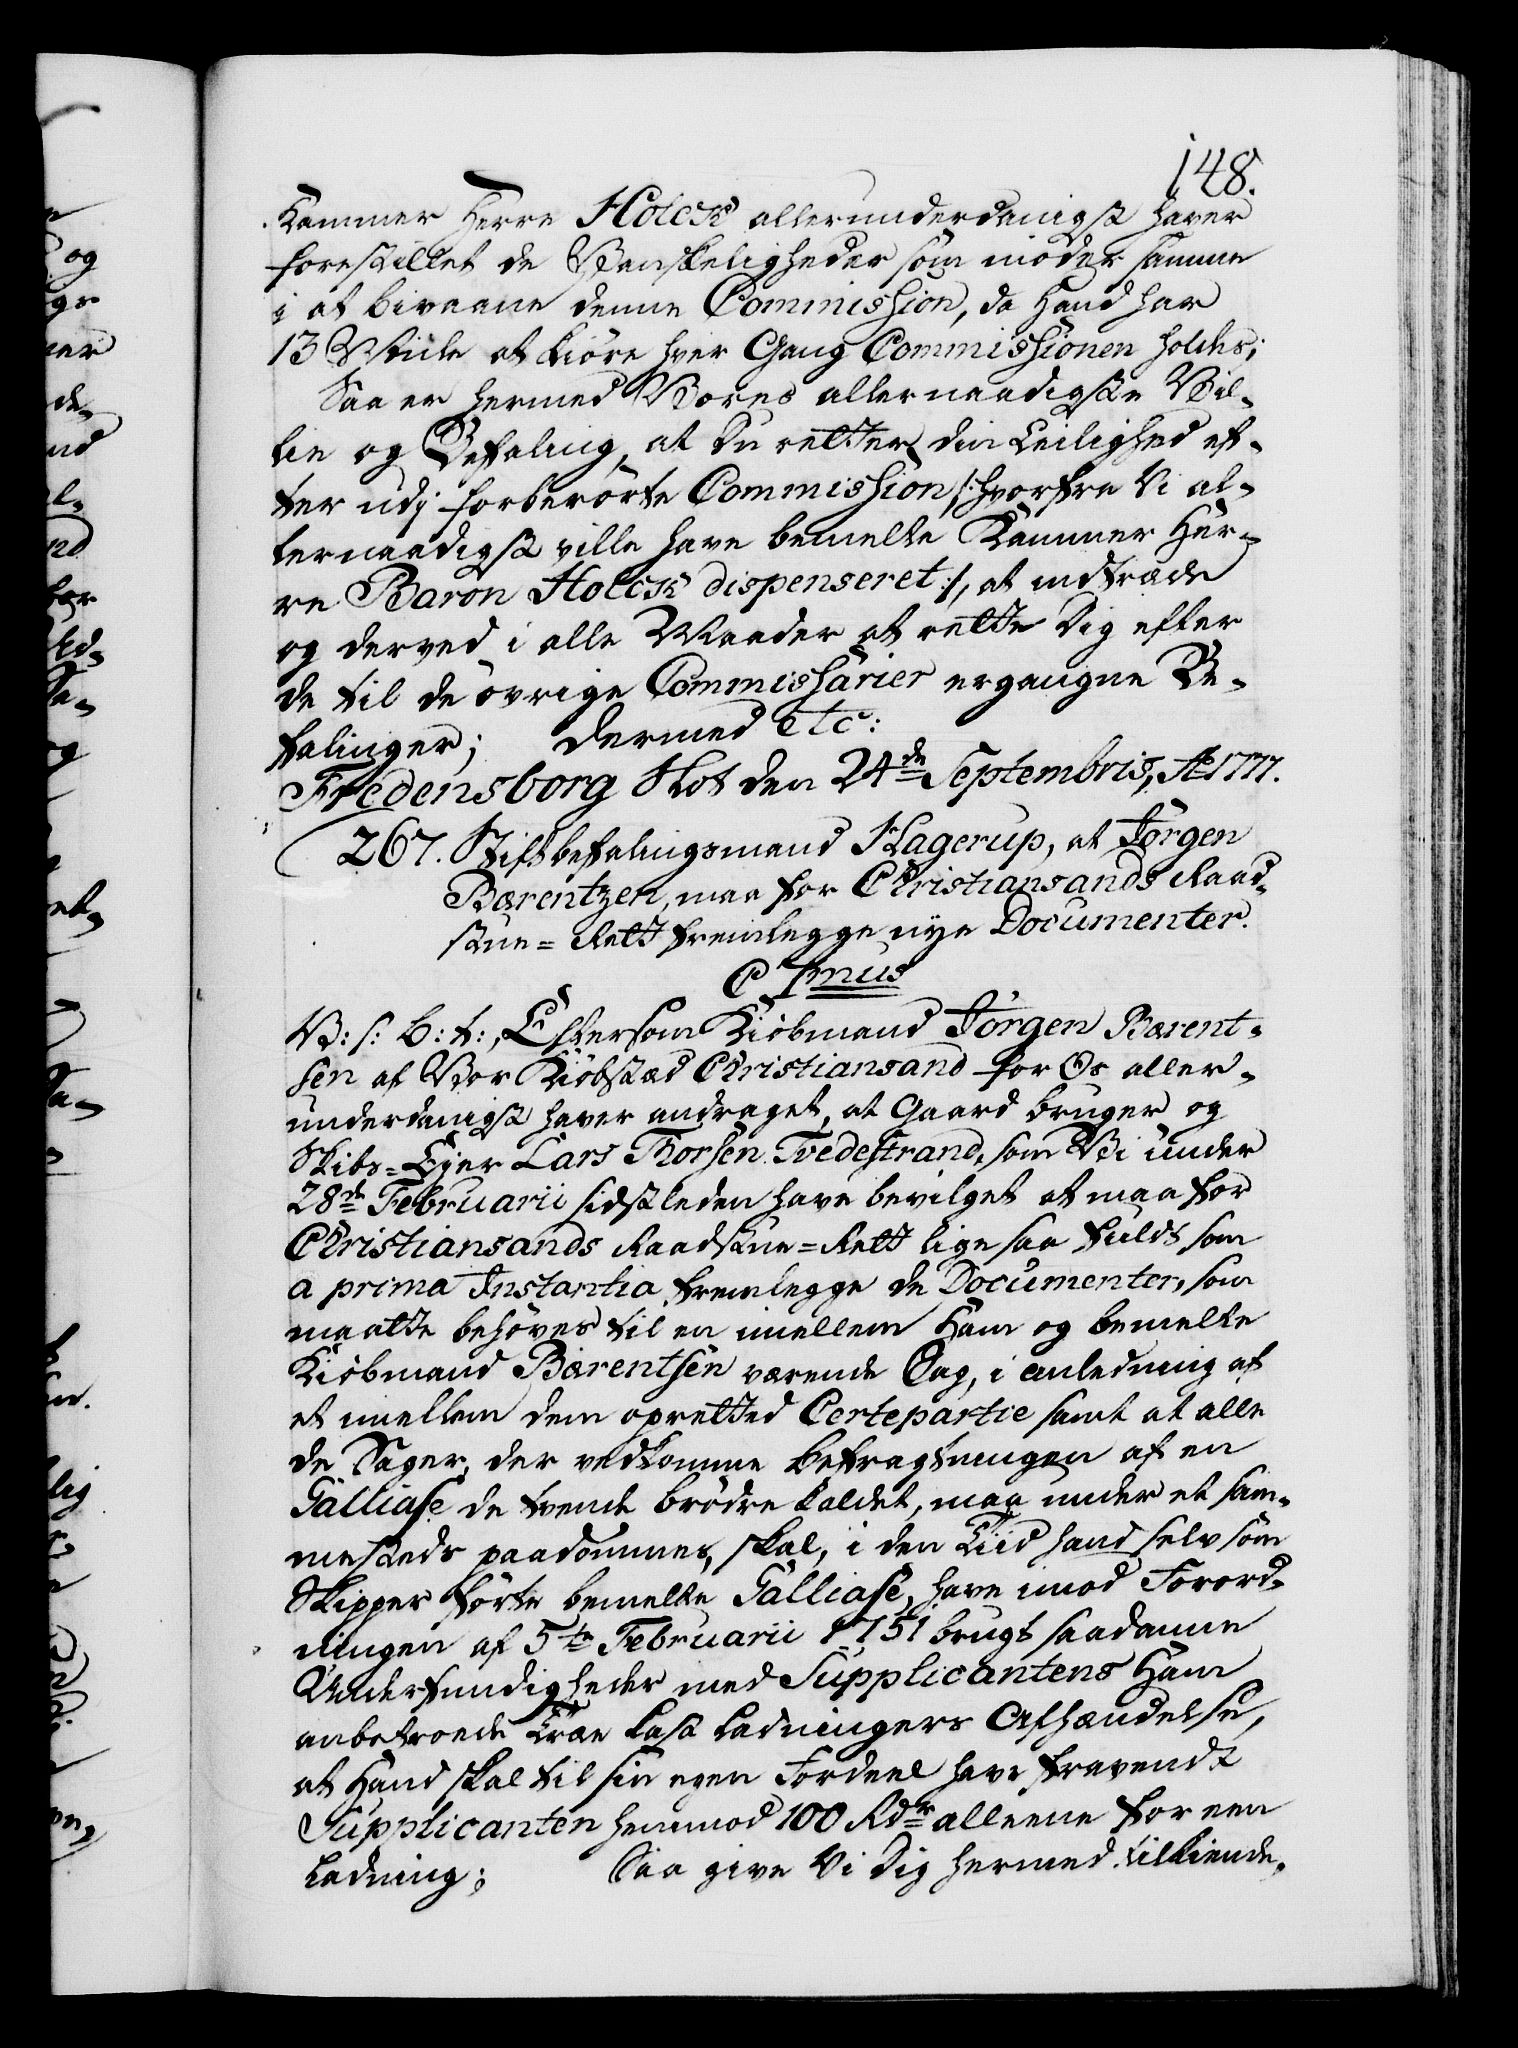 148.
Kammer Herre Holck allerunderdanigst haver
forestillet de Vanskeligheder som möder samme
i at bivaane denne Commission, da Hand har
13 Miile at kiöre hver Gang Commissionen holdes;
Saa er hermed Vores allernaadigste Vil-
lie og Befaling, at Du retter din Leilighed ef-
ter udj forberörte Commission /: hvorfra Vi al-
lernaadigst ville have bemelte Kammer Her-
re Baron Holck dispenseret :/, at indtræde
og derved i alle Maader at rette Dig efter
de til de övrige Commissarier ergangne Be-
falinger; Dermed etc:
Fredensborg Slot den 24de Septembris, Ao 1777.
267. Stiftbefalingsmand Hagerup, at Jörgen
Bærentzen, maa for Christiansands Raad-
stue-Rett fremlegge nye Documenter.
C 7mus
V: s: b: t:, Eftersom Kiöbmand Jörgen Bærent-
sen af Vor Kiöbstæd Christiansand for Os aller-
underdanigst haver andraget, at Gaard bruger og
Skibs-Ejer Lars Thorsen Tvedestrand, som Vi under
28de Februarii sidstleden have bevilget at maa for
Christiansands Raadstue-Rett lige saa fuldt som
a prima Instantia fremlegge de Documenter, som
maatte behöves til en imellem Ham og bemelte
Kiöbmand Bærentsen værende Sag, i anledning af
et imellem dem opretted Certepartie samt at alle
de Sager, der vedkomme befragtningen af en
Galliase de tvende brödre kaldet, maa under et sam-
mesteds paadömmes, skal, i den Tiid hand selv som
Skipper förte bemelte Galliase, have imod Forord-
ningen af 5te Februarii 1751 brugt saadanne
Underfundigheder med Supplicantens Ham
anbetroede Træe Last Ladningers Afhændelse,
at Hand skal til sin egen Fordeel have fravendt
Supplicanten henimod 100 Rdr alleene for een
Ladning; Saa give Vi Dig hermed tilkiende,